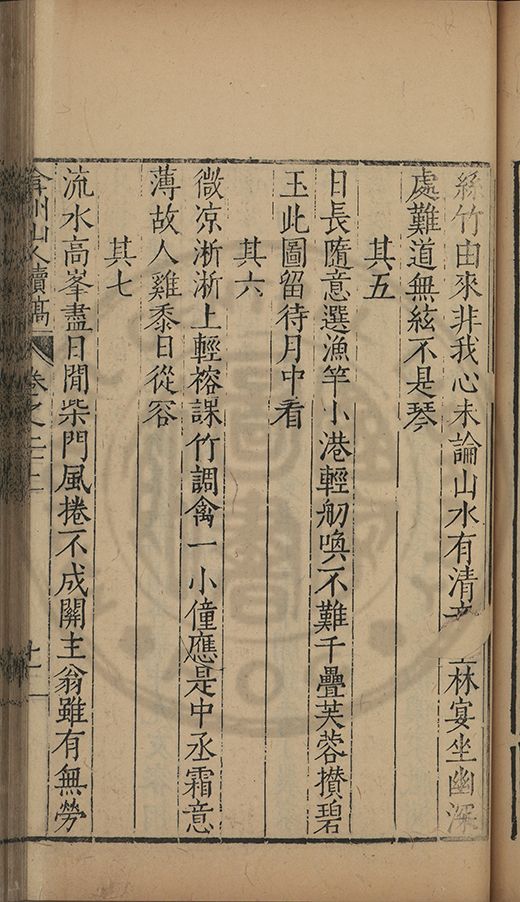 絲竹由來非我心未論山水有清音 林宴坐幽深
處難道無絃不是琴
其五
日長隨意選漁竿小港輕舠喚不難千疊芙蓉攢碧
玉此圖留待月中看
其六
微凉淅淅上輕褣課竹調禽一小僮應是中丞霜意
薄故人雞黍日從容
其七
流水高峯盡日閒柴門風捲不成關主翁雖有無勞
弇州山人續稿 卷之二十二